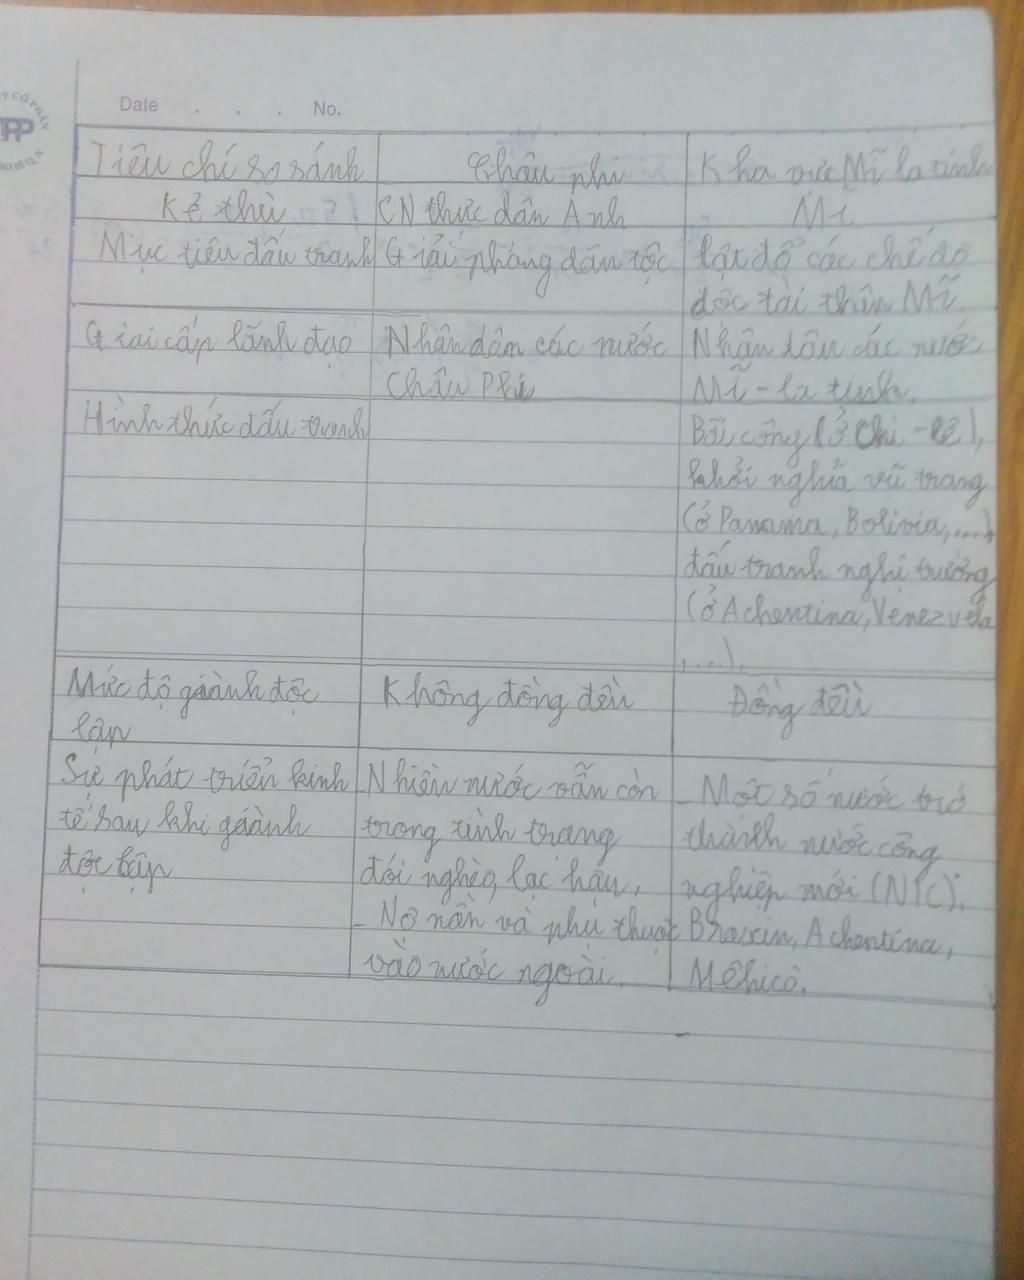 Date . . . No.
Tiêu chí so sánh
Châu phi
Khu vực Mĩ la tinh
Kẻ thù
CN thực dân Anh
Mĩ
Mục tiêu đấu tranh
Giải phóng dân tộc
lật đổ các chế độ
độc tài thân Mĩ.
Giai cấp lãnh đạo
Nhân dân các nước
Châu Phi
Nhân dân các nước
Mĩ - la tinh.
Hình thức đấu tranh
Bãi công (ở Chi - lê),
khởi nghĩa vũ trang
(ở Panama, Bolivia,....),
đấu tranh nghị trường
(ở Achentina, Venezuela
,....).
Mức độ giành độc
lập
Không đồng đều
Đồng đều
Sự phát triển kinh
tế sau khi giành
độc lập
- Nhiều nước vẫn còn
trong tình trạng
đói nghèo, lạc hậu,
- Nợ nần và phụ thuộc
vào nước ngoài.
- Một số nước trở
thành nước công
nghiệp mới (NIC):
Braxin, Achentina,
Mêhicô.